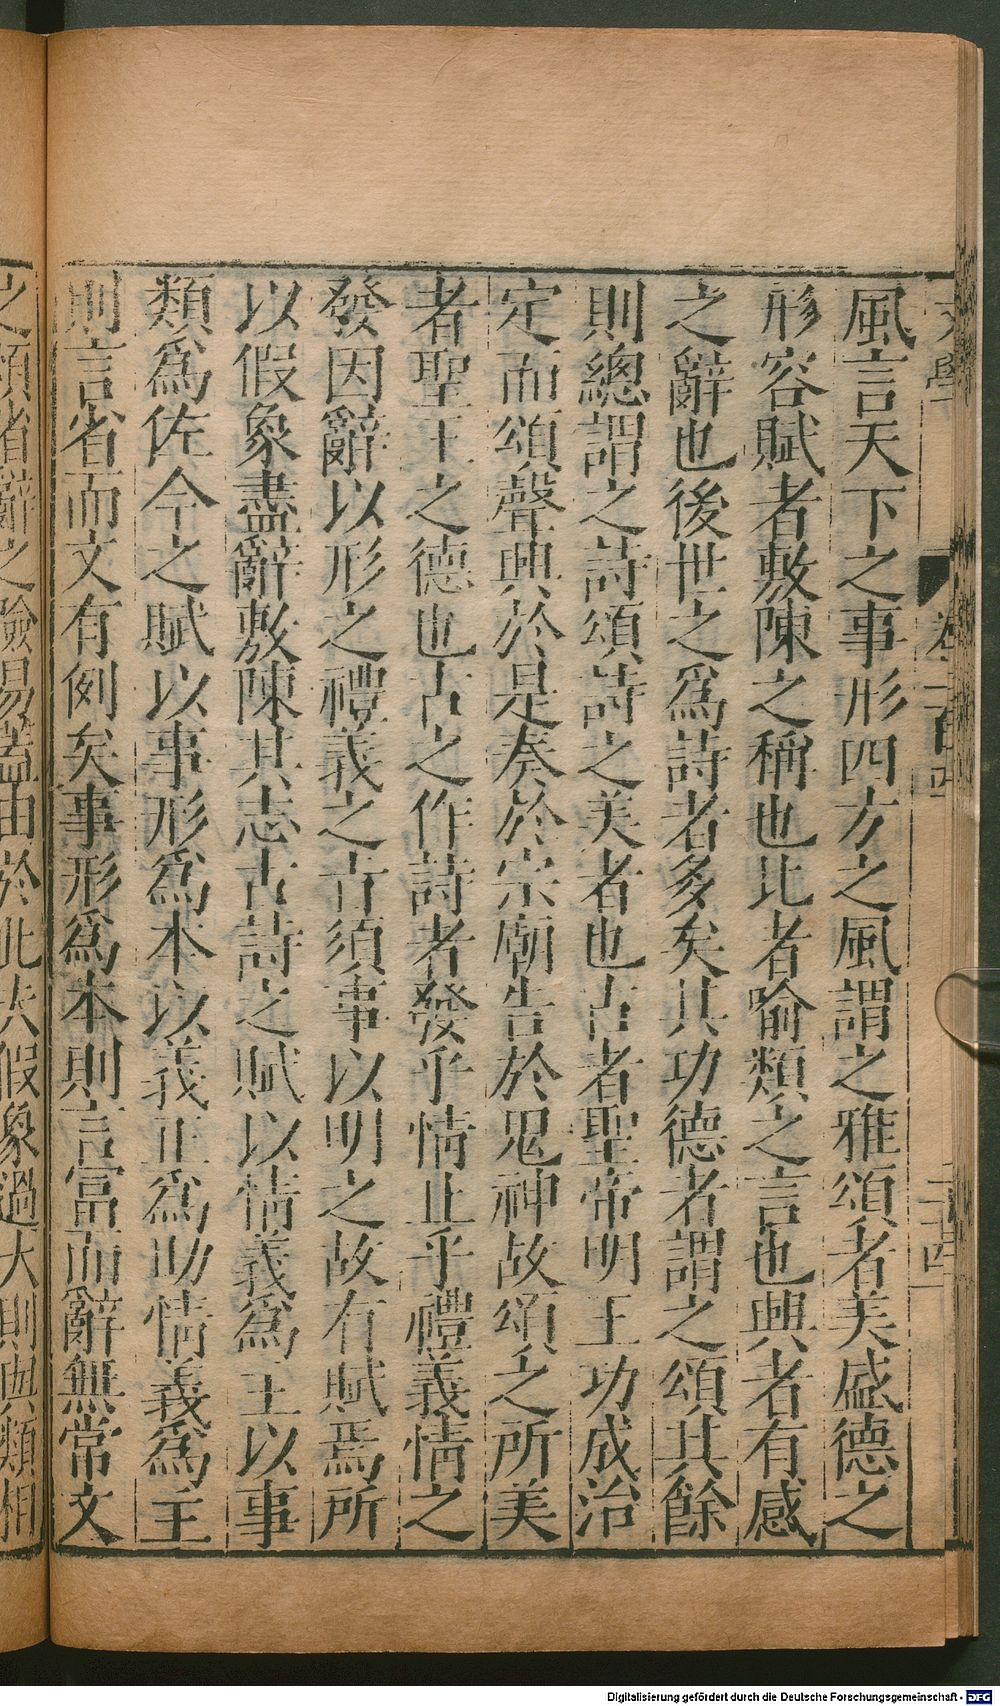 風言天下之事形四方之風謂之雅頌者美盛德之
形容賦者敷陳之稱也比者喻類之言也興者有感
之辭也後世之為詩者多矣其功德者謂之頌其餘
則總謂之詩頌詩之美者也古者聖帝明王功成治
定而頌聲興於是奏於宗廟告於鬼神故頌之所美
者聖王之德也古之作詩者發乎情止乎禮義情之
發因辭以形之禮義之旨須事以明之故有賦焉所
以假象盡辭敷陳其志古詩之賦以情義為主以事
類為佐今之賦以事形為本以義正為助情義為主
則言省而文有例矣事形為本則言富而辭無常文
之煩省辭之險易蓋由於此夫假象過大則與類相
Digitalisierung gefördert durch die Deutsche Forschungsgemeinschaft - DFG